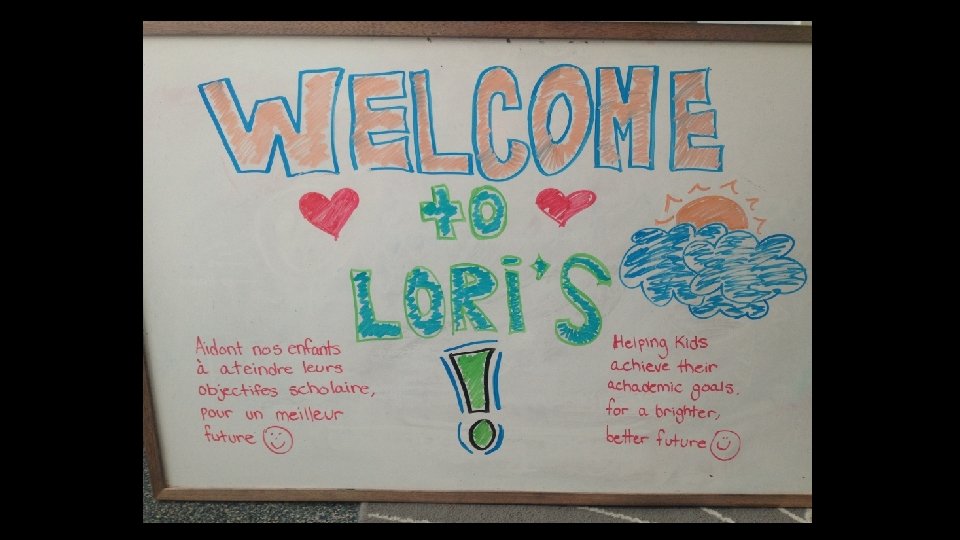 WELCOME
to
LORi'S
!
Aidant nos enfants
à ateindre leurs
objectifes scholaire,
pour un meilleur
future
Helping Kids
achieve their
achademic goals,
for a brighter,
better future